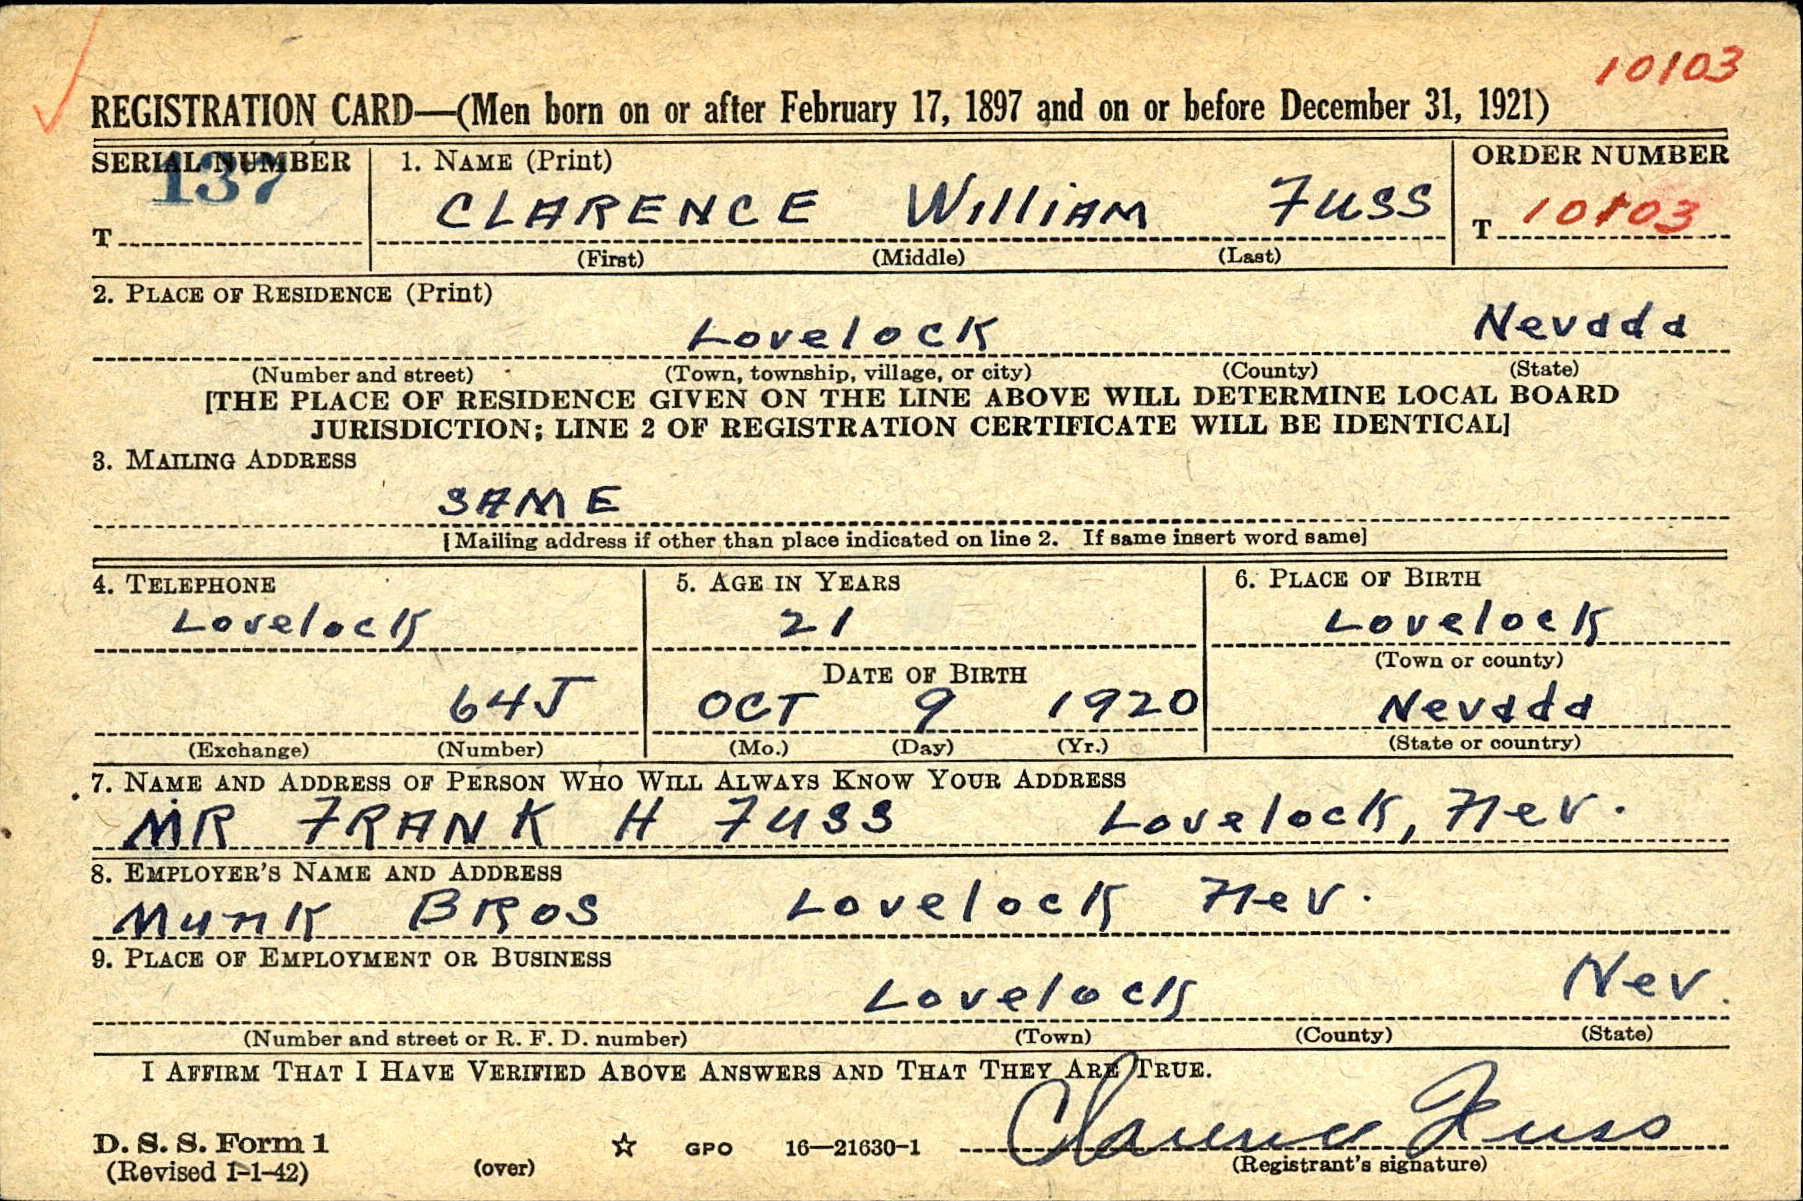 10103
REGISTRATION CARD—(Men born on or after February 17, 1897 and on or before December 31, 1921)
SERIAL NUMBER 1. NAME (Print) ORDER NUMBER
137
T CLARENCE William FUSS T 10103
(First) (Middle) (Last)
2. PLACE OF RESIDENCE (Print)
Lovelock Nevada
(Number and street) (Town, township, village, or city) (County) (State)
[THE PLACE OF RESIDENCE GIVEN ON THE LINE ABOVE WILL DETERMINE LOCAL BOARD
JURISDICTION; LINE 2 OF REGISTRATION CERTIFICATE WILL BE IDENTICAL]
3. MAILING ADDRESS
SAME
[Mailing address if other than place indicated on line 2. If same insert word same]
4. TELEPHONE 5. AGE IN YEARS 6. PLACE OF BIRTH
Lovelock 21 Lovelock
DATE OF BIRTH (Town or county)
64J OCT 9 1920 Nevada
(Exchange) (Number) (Mo.) (Day) (Yr.) (State or country)
7. NAME AND ADDRESS OF PERSON WHO WILL ALWAYS KNOW YOUR ADDRESS
MR FRANK H FUSS Lovelock, Nev.
8. EMPLOYER'S NAME AND ADDRESS
Munk BROS Lovelock Nev.
9. PLACE OF EMPLOYMENT OR BUSINESS
Lovelock Nev.
(Number and street or R. F. D. number) (Town) (County) (State)
I AFFIRM THAT I HAVE VERIFIED ABOVE ANSWERS AND THAT THEY ARE TRUE.
Clarence Fuss
D. S. S. Form 1 ☆ GPO 16—21630-1
(Revised 1-1-42) (over) (Registrant's signature)